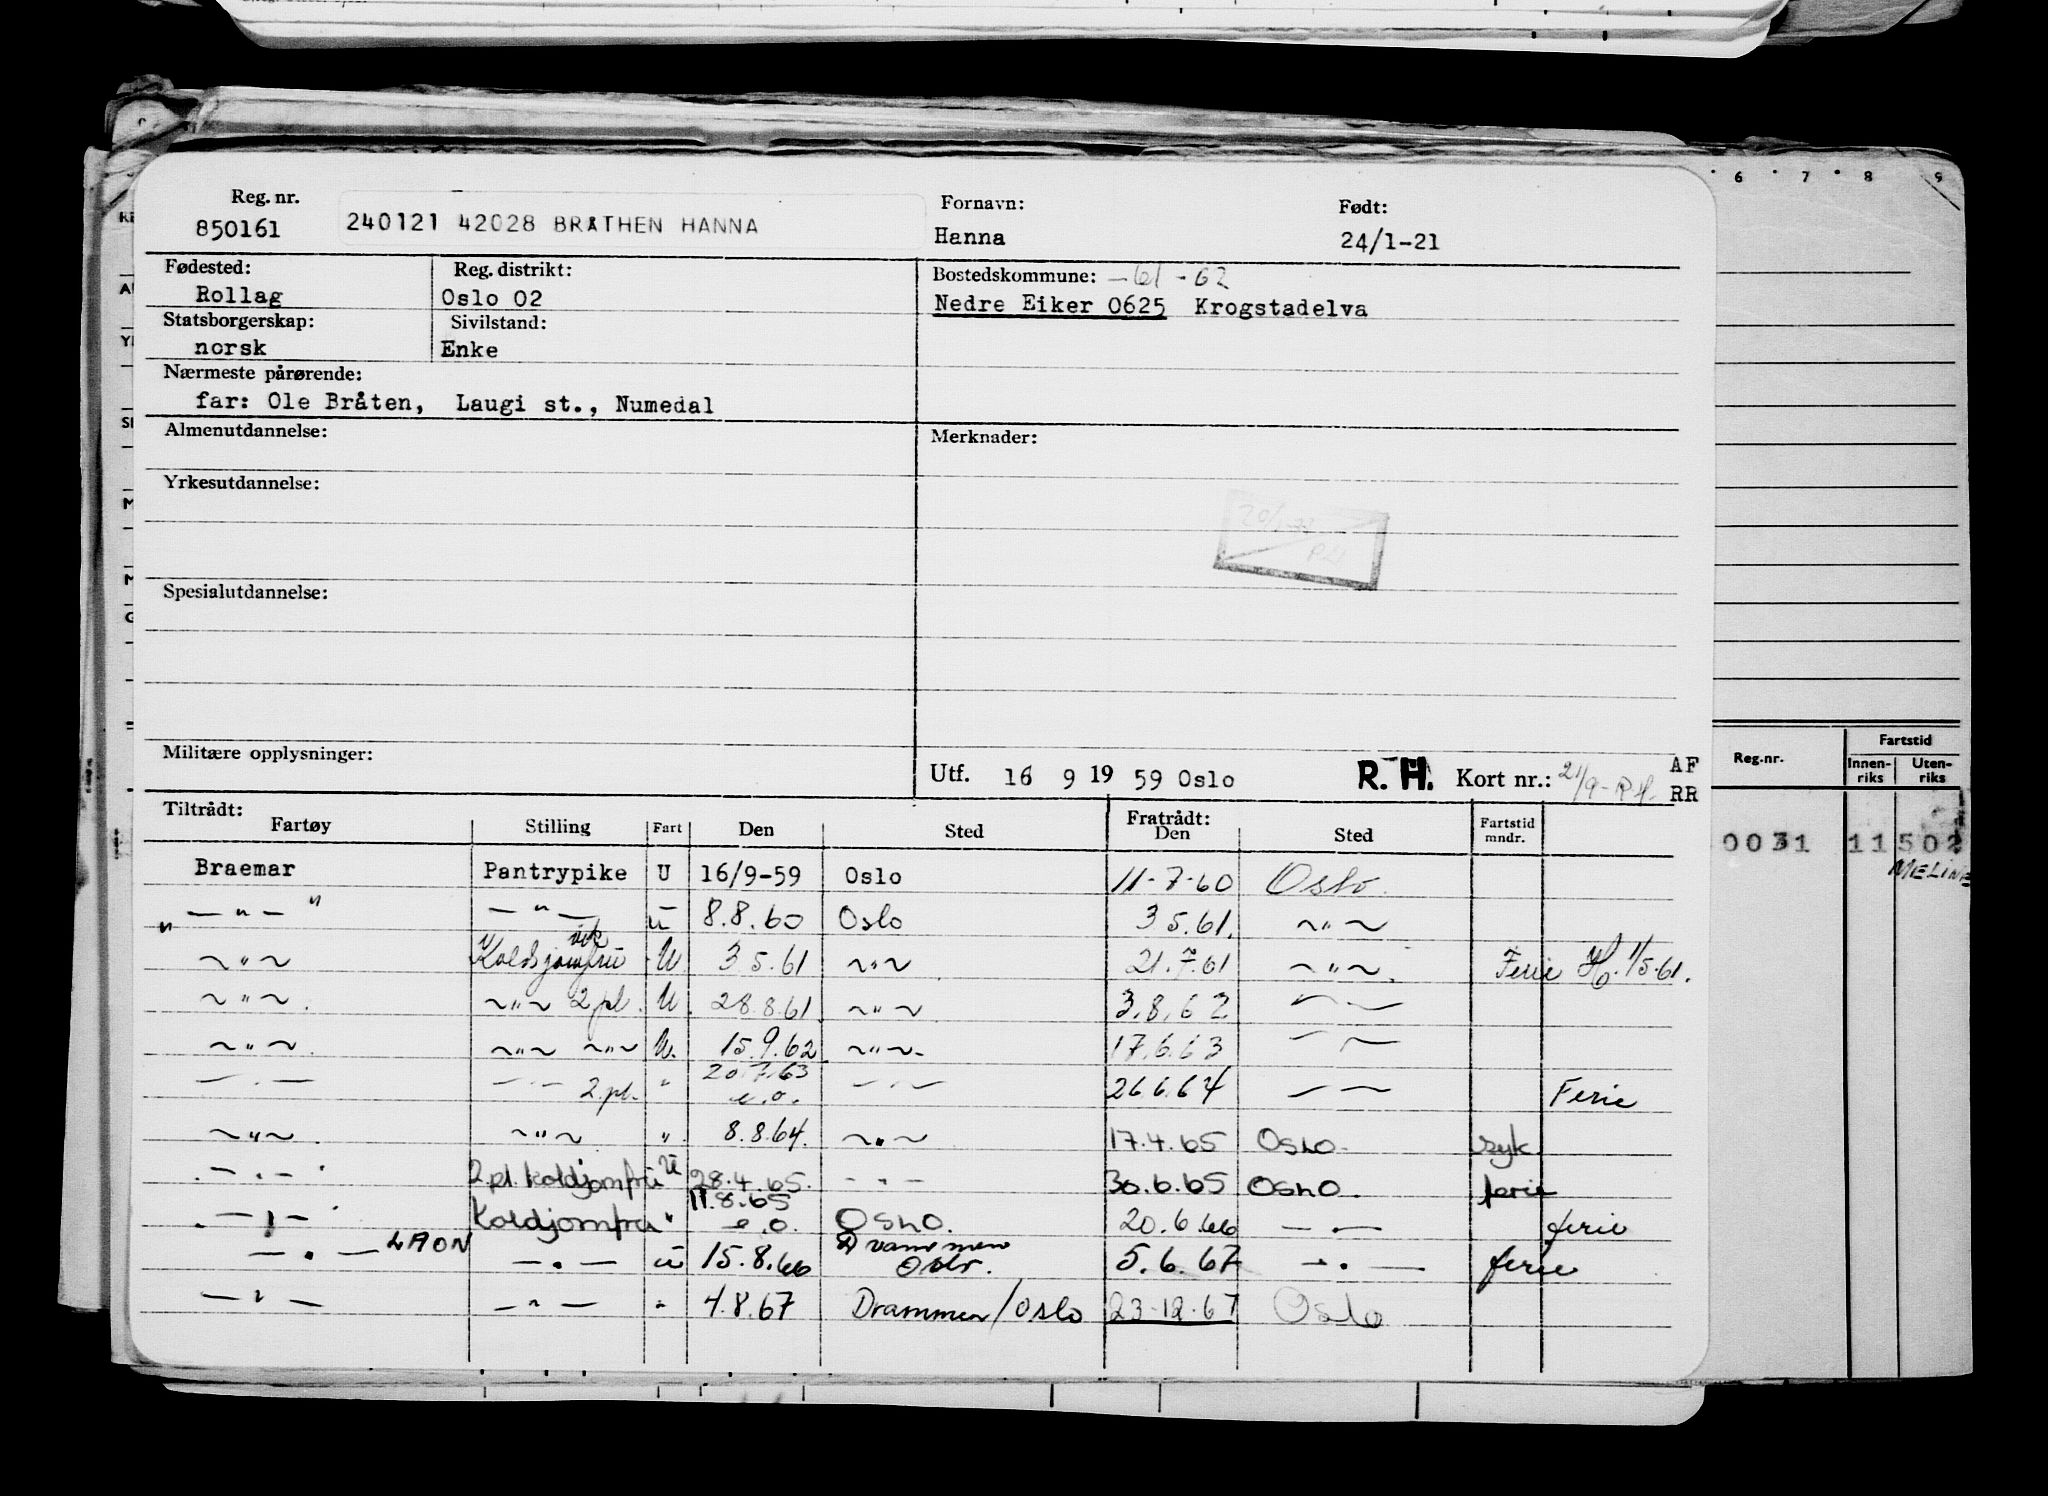 Reg. nr. Fornavn: Født:
850161 240121 42028 BRÅTHEN HANNA Hanna 24/1-21
Fødested: Reg. distrikt: Bostedskommune: -61-62
Rollag Oslo 02 Nedre Eiker 0625 Krogstadelva
Statsborgerskap: Sivilstand:
norsk Enke
Nærmeste pårørende:
far: Ole Bråten, Laugi st., Numedal
Almenutdannelse: Merknader:
Yrkesutdannelse:
Spesialutdannelse:
Militære opplysninger:
Utf. 16 9 19 59 Oslo R. H. Kort nr.: 21/9- AF RR
Tiltrådt: Fratrådt:
Fartøy Stilling Fart Den Sted Den Sted Fartstid mndr.
Braemar Pantrypike U 16/9-59 Oslo 11-7-60 Oslo.
— " — " — " — U 8.8.60 Oslo 3 5.61. ~ " ~
~ " ~ Koldjomfru U 3 5.61 ~ " ~ 21.7.61 ~ " ~. Ferie 1/5.61.
~ " ~. ~ " ~ 2.pl. U. 28.8.61. ~ " ~ 3.8.62 — " —
~ " ~. ~ " ~ ~ " ~ U. 15.9.62 ~ " ~. 17.6.63 — " —
— . — — . — 2.pl. " 20.7.63 e.o. — . — 26.6.64 — — Ferie
~ " ~. ~ " ~ " 8.8.64. ~ " ~ 17.4.65 Oslo. syk.
— . — 2.pl. koldjomfru U 28.4.65. — . — 30.6.65 OSLO. ferie
— . — Koldjomfru " 11.8.65 e.o. OSLO. 20.6.66 — . — ferie
— . — LAON — . — U 15.8.66 Drammen Oslo. 5.6.67 — . — ferie
— " — — " — " 4.8.67 Drammen/Oslo 23-12-67 Oslo
6 7 8 9
Reg.nr. Fartstid
Innen-riks Uten-riks
0031 11 502